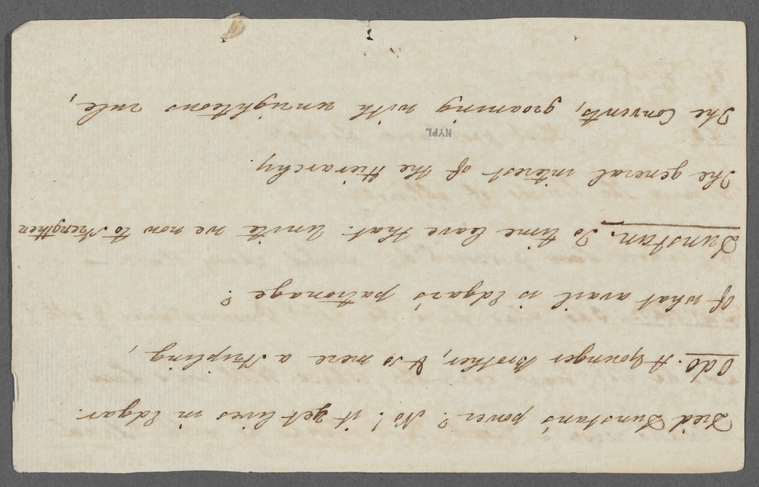 Died Dunstan's power? No! it yet lives in Edgar.
Odo. A younger Brother, & so mere a stripling,
Of what avail is Edgar's patronage?
Dunstan. To time leave that. Unite we now to strengthen
The general interest of the Hierarchy.
NYPL
The Convents, groaning with unrighteous rule,